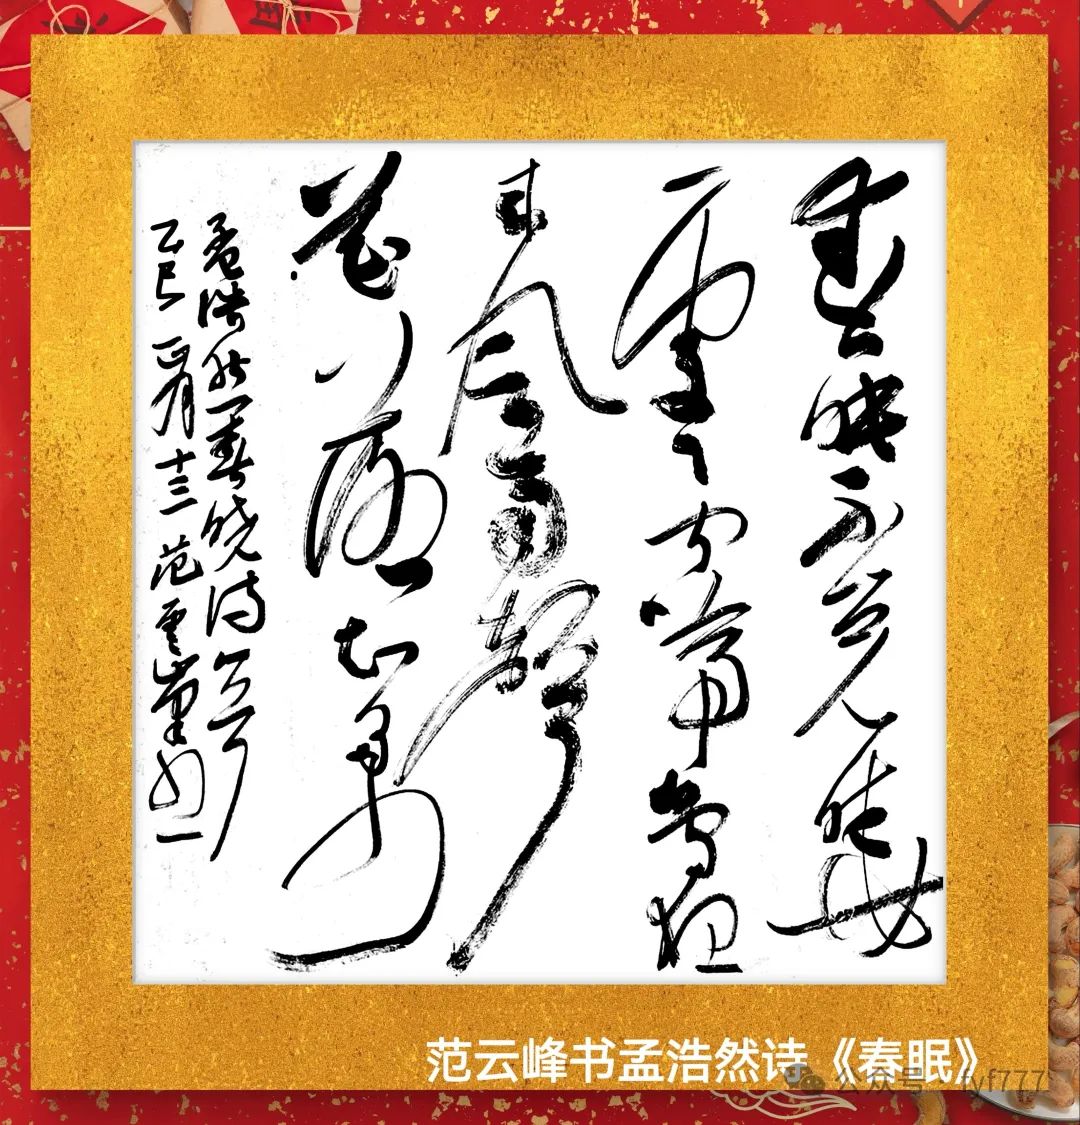 春眠不觉晓
處々闻啼鸟夜
来风雨聲
花落知多少
孟浩然春晓诗
乙巳正月十三 范云峰书
范云峰书孟浩然诗《春眠》
公众号 · fyf777